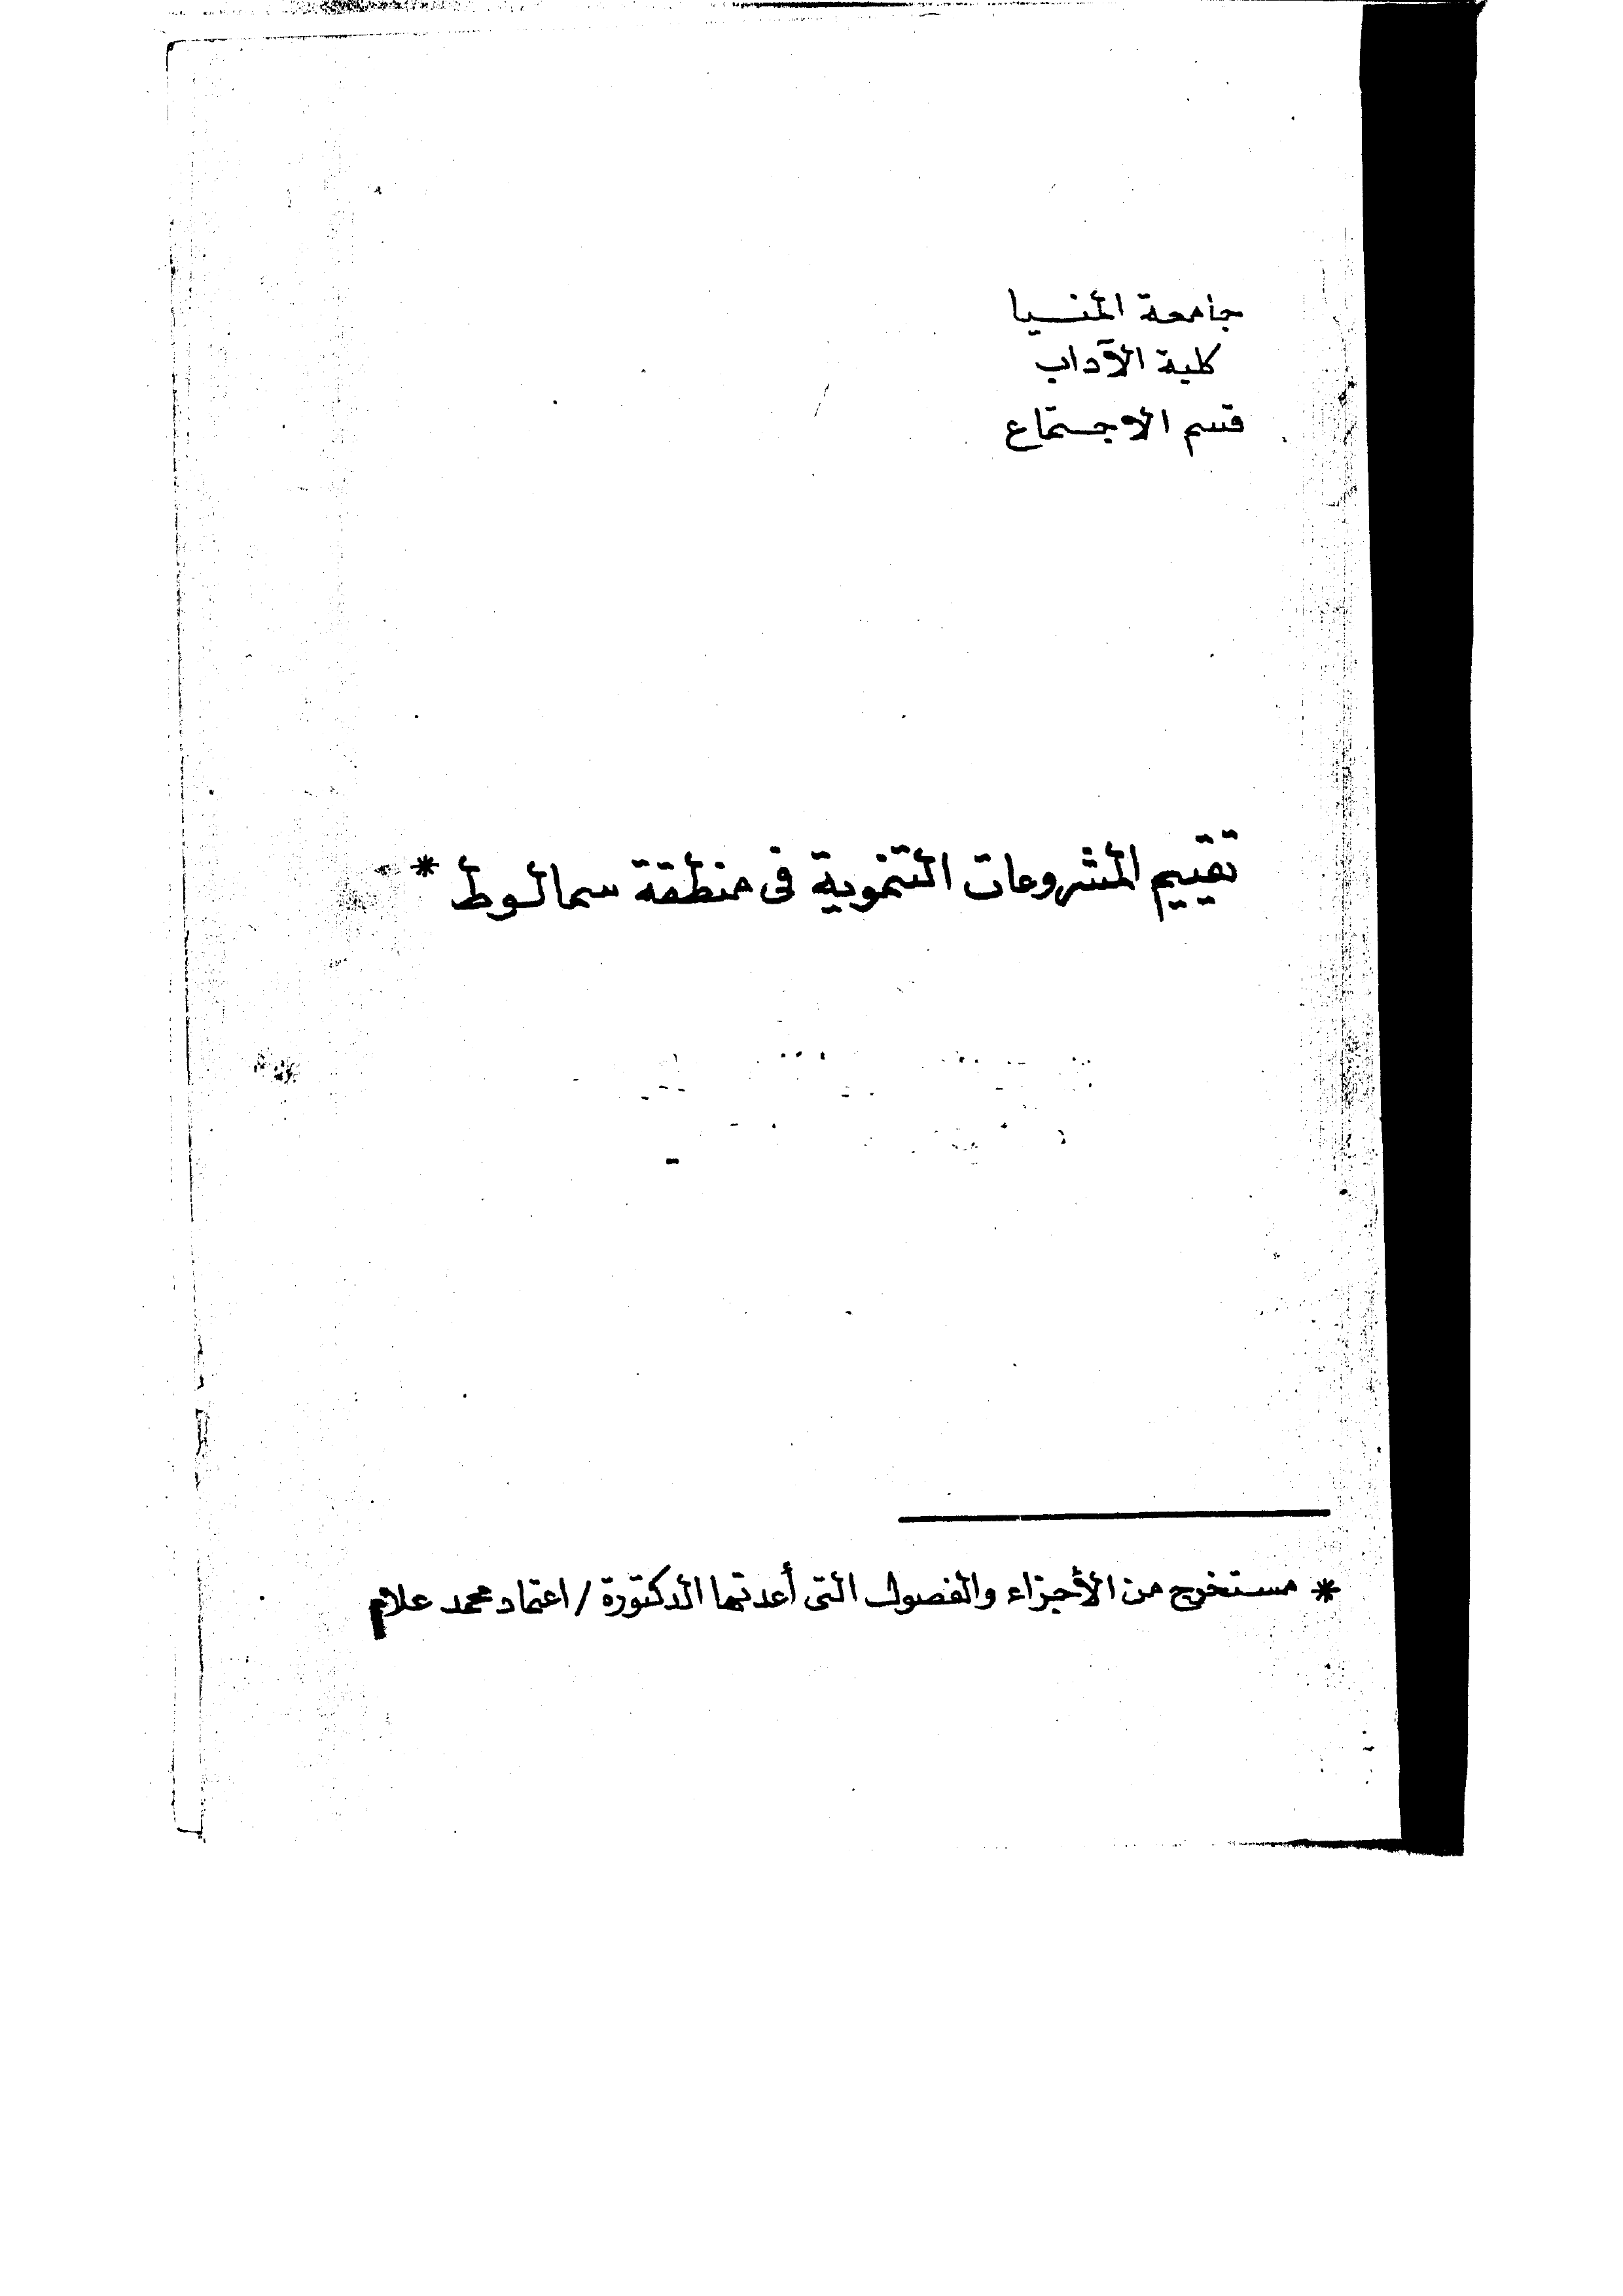 جامعة المنيا
كلية الآداب
قسم الاجتماع
تقييم المشروعات التنموية فى منطقة سمالوط *
* مستخرج من الأجزاء والفصول التى أعدتها الدكتورة / اعتماد محمد علام